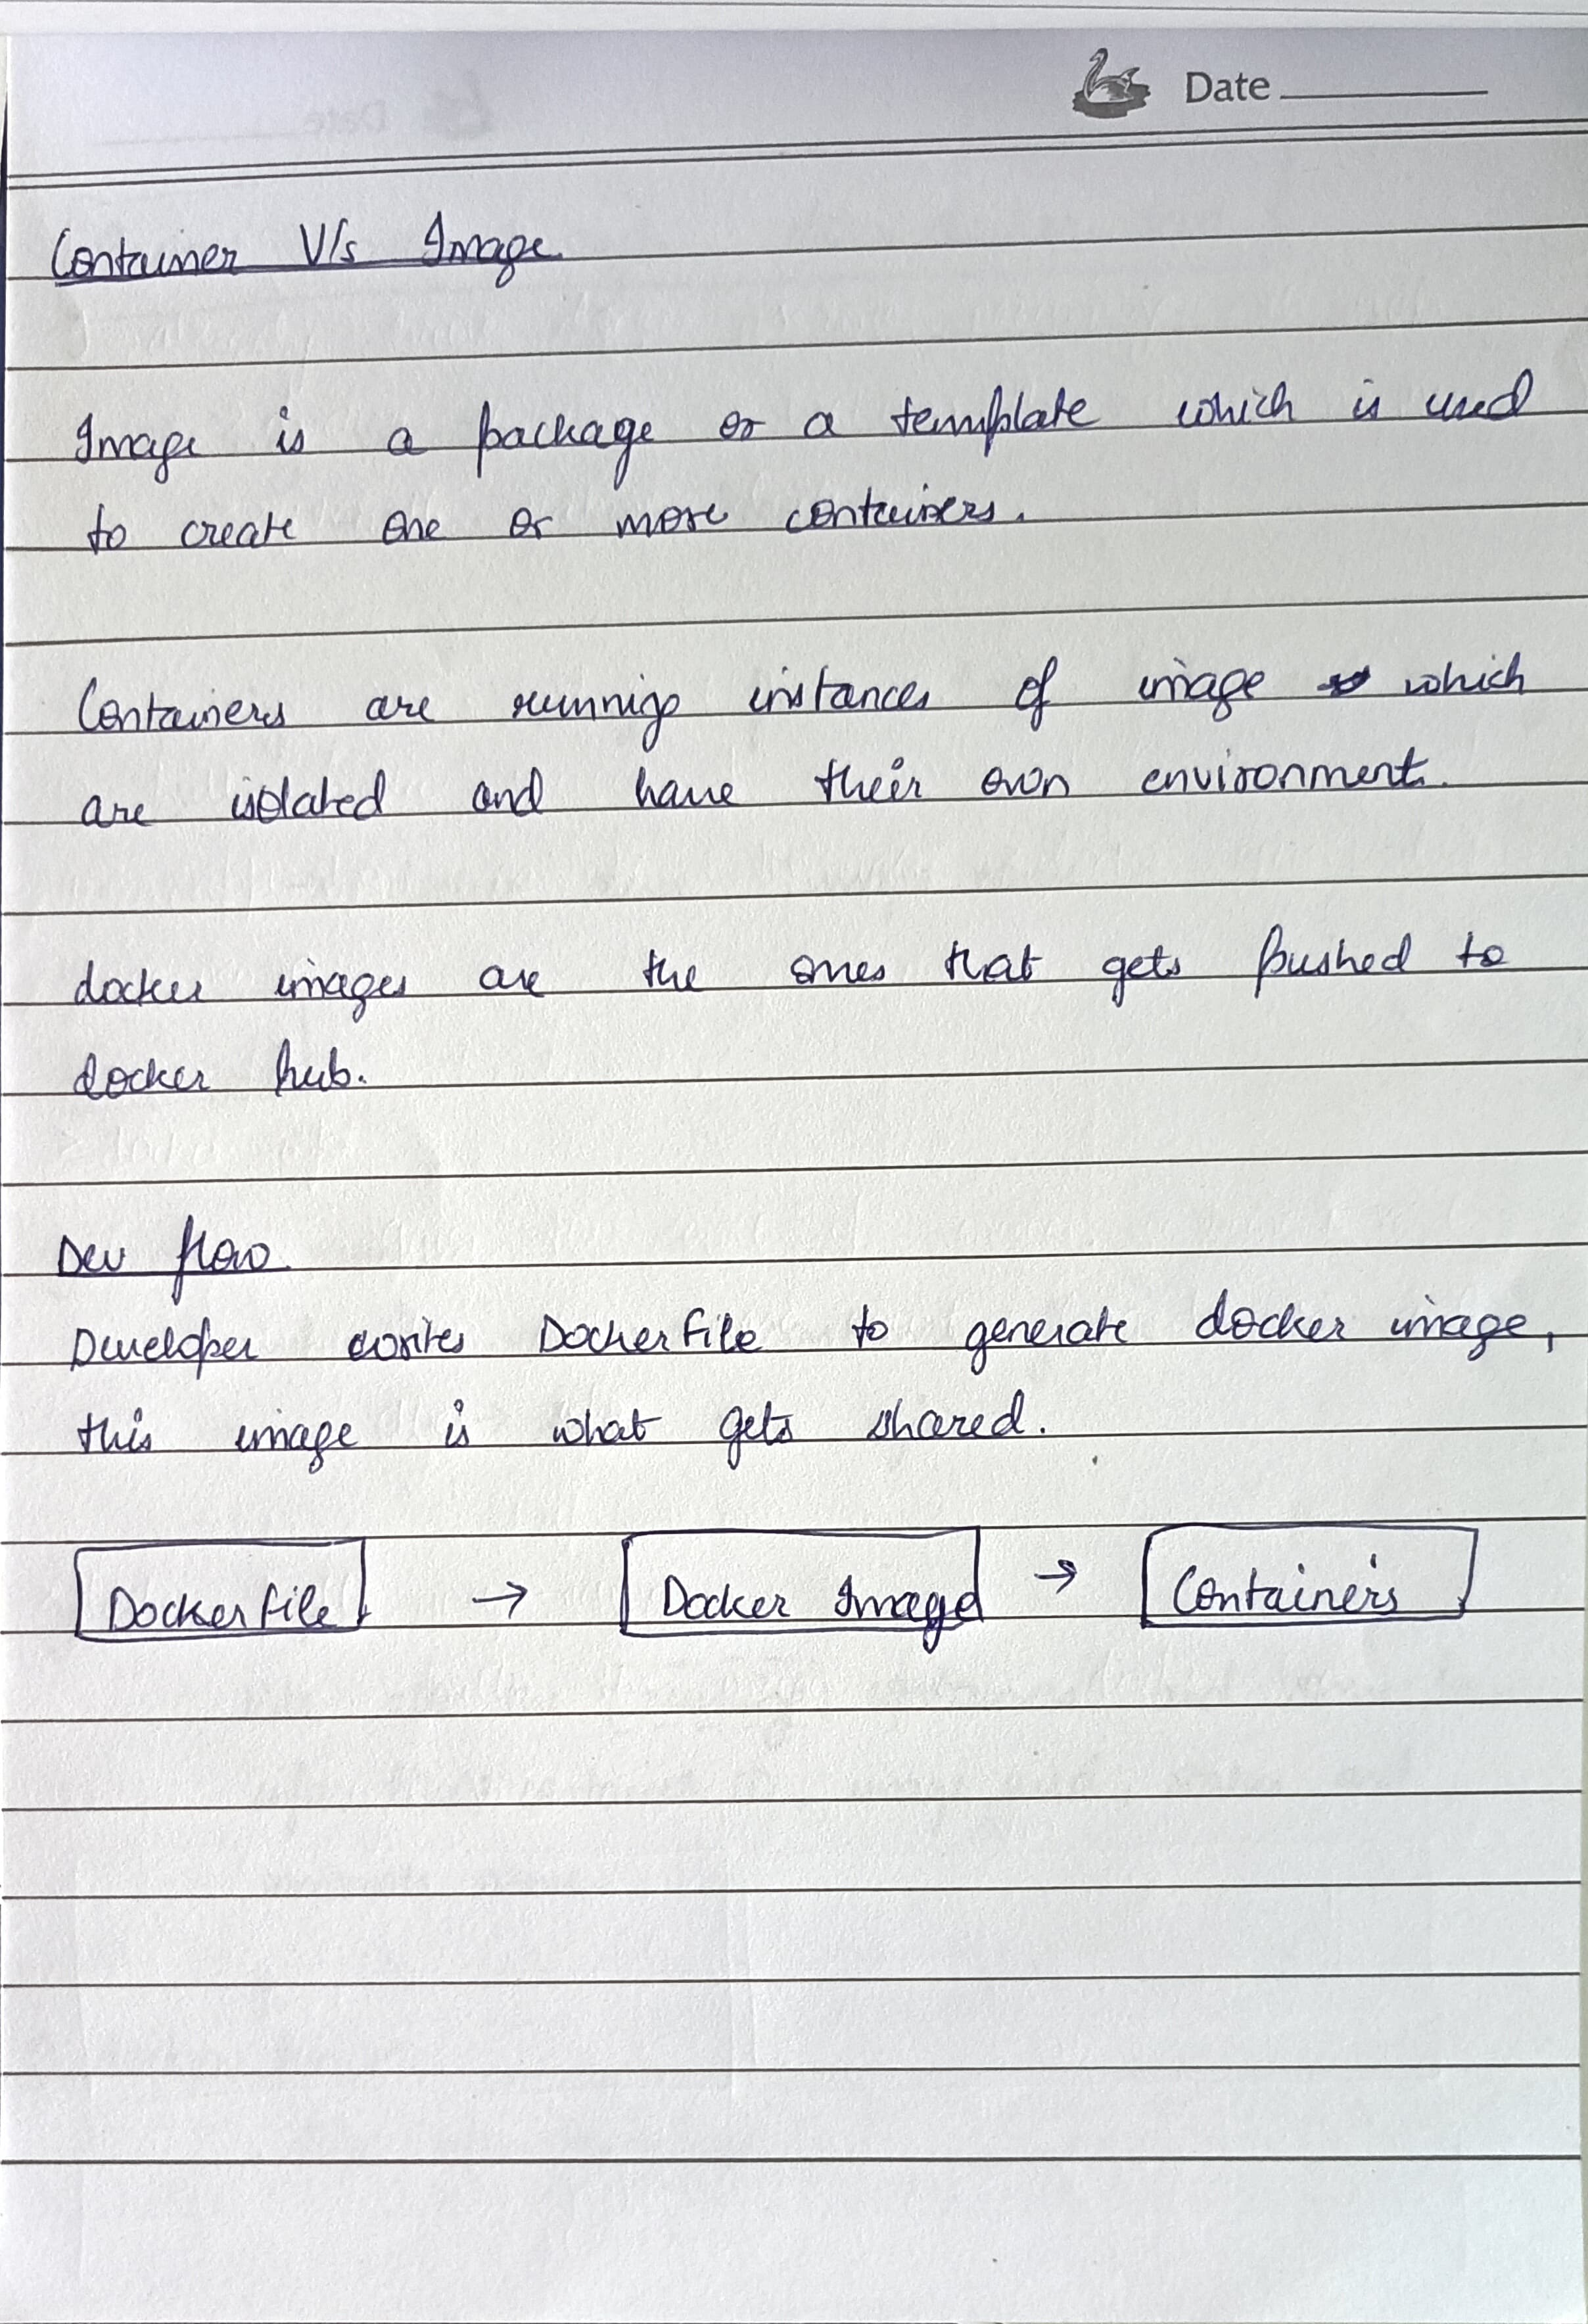 Date
Container V/s Image
Image is a package or a template which is used
to create one or more containers.
Containers are runnig instances of image which
are isolated and have their own environment.
docker images are the ones that gets pushed to
docker hub.
Dev flow
Developer writes Dockerfile to generate docker image,
this image is what gets shared.
Dockerfile → Docker Image → Containers